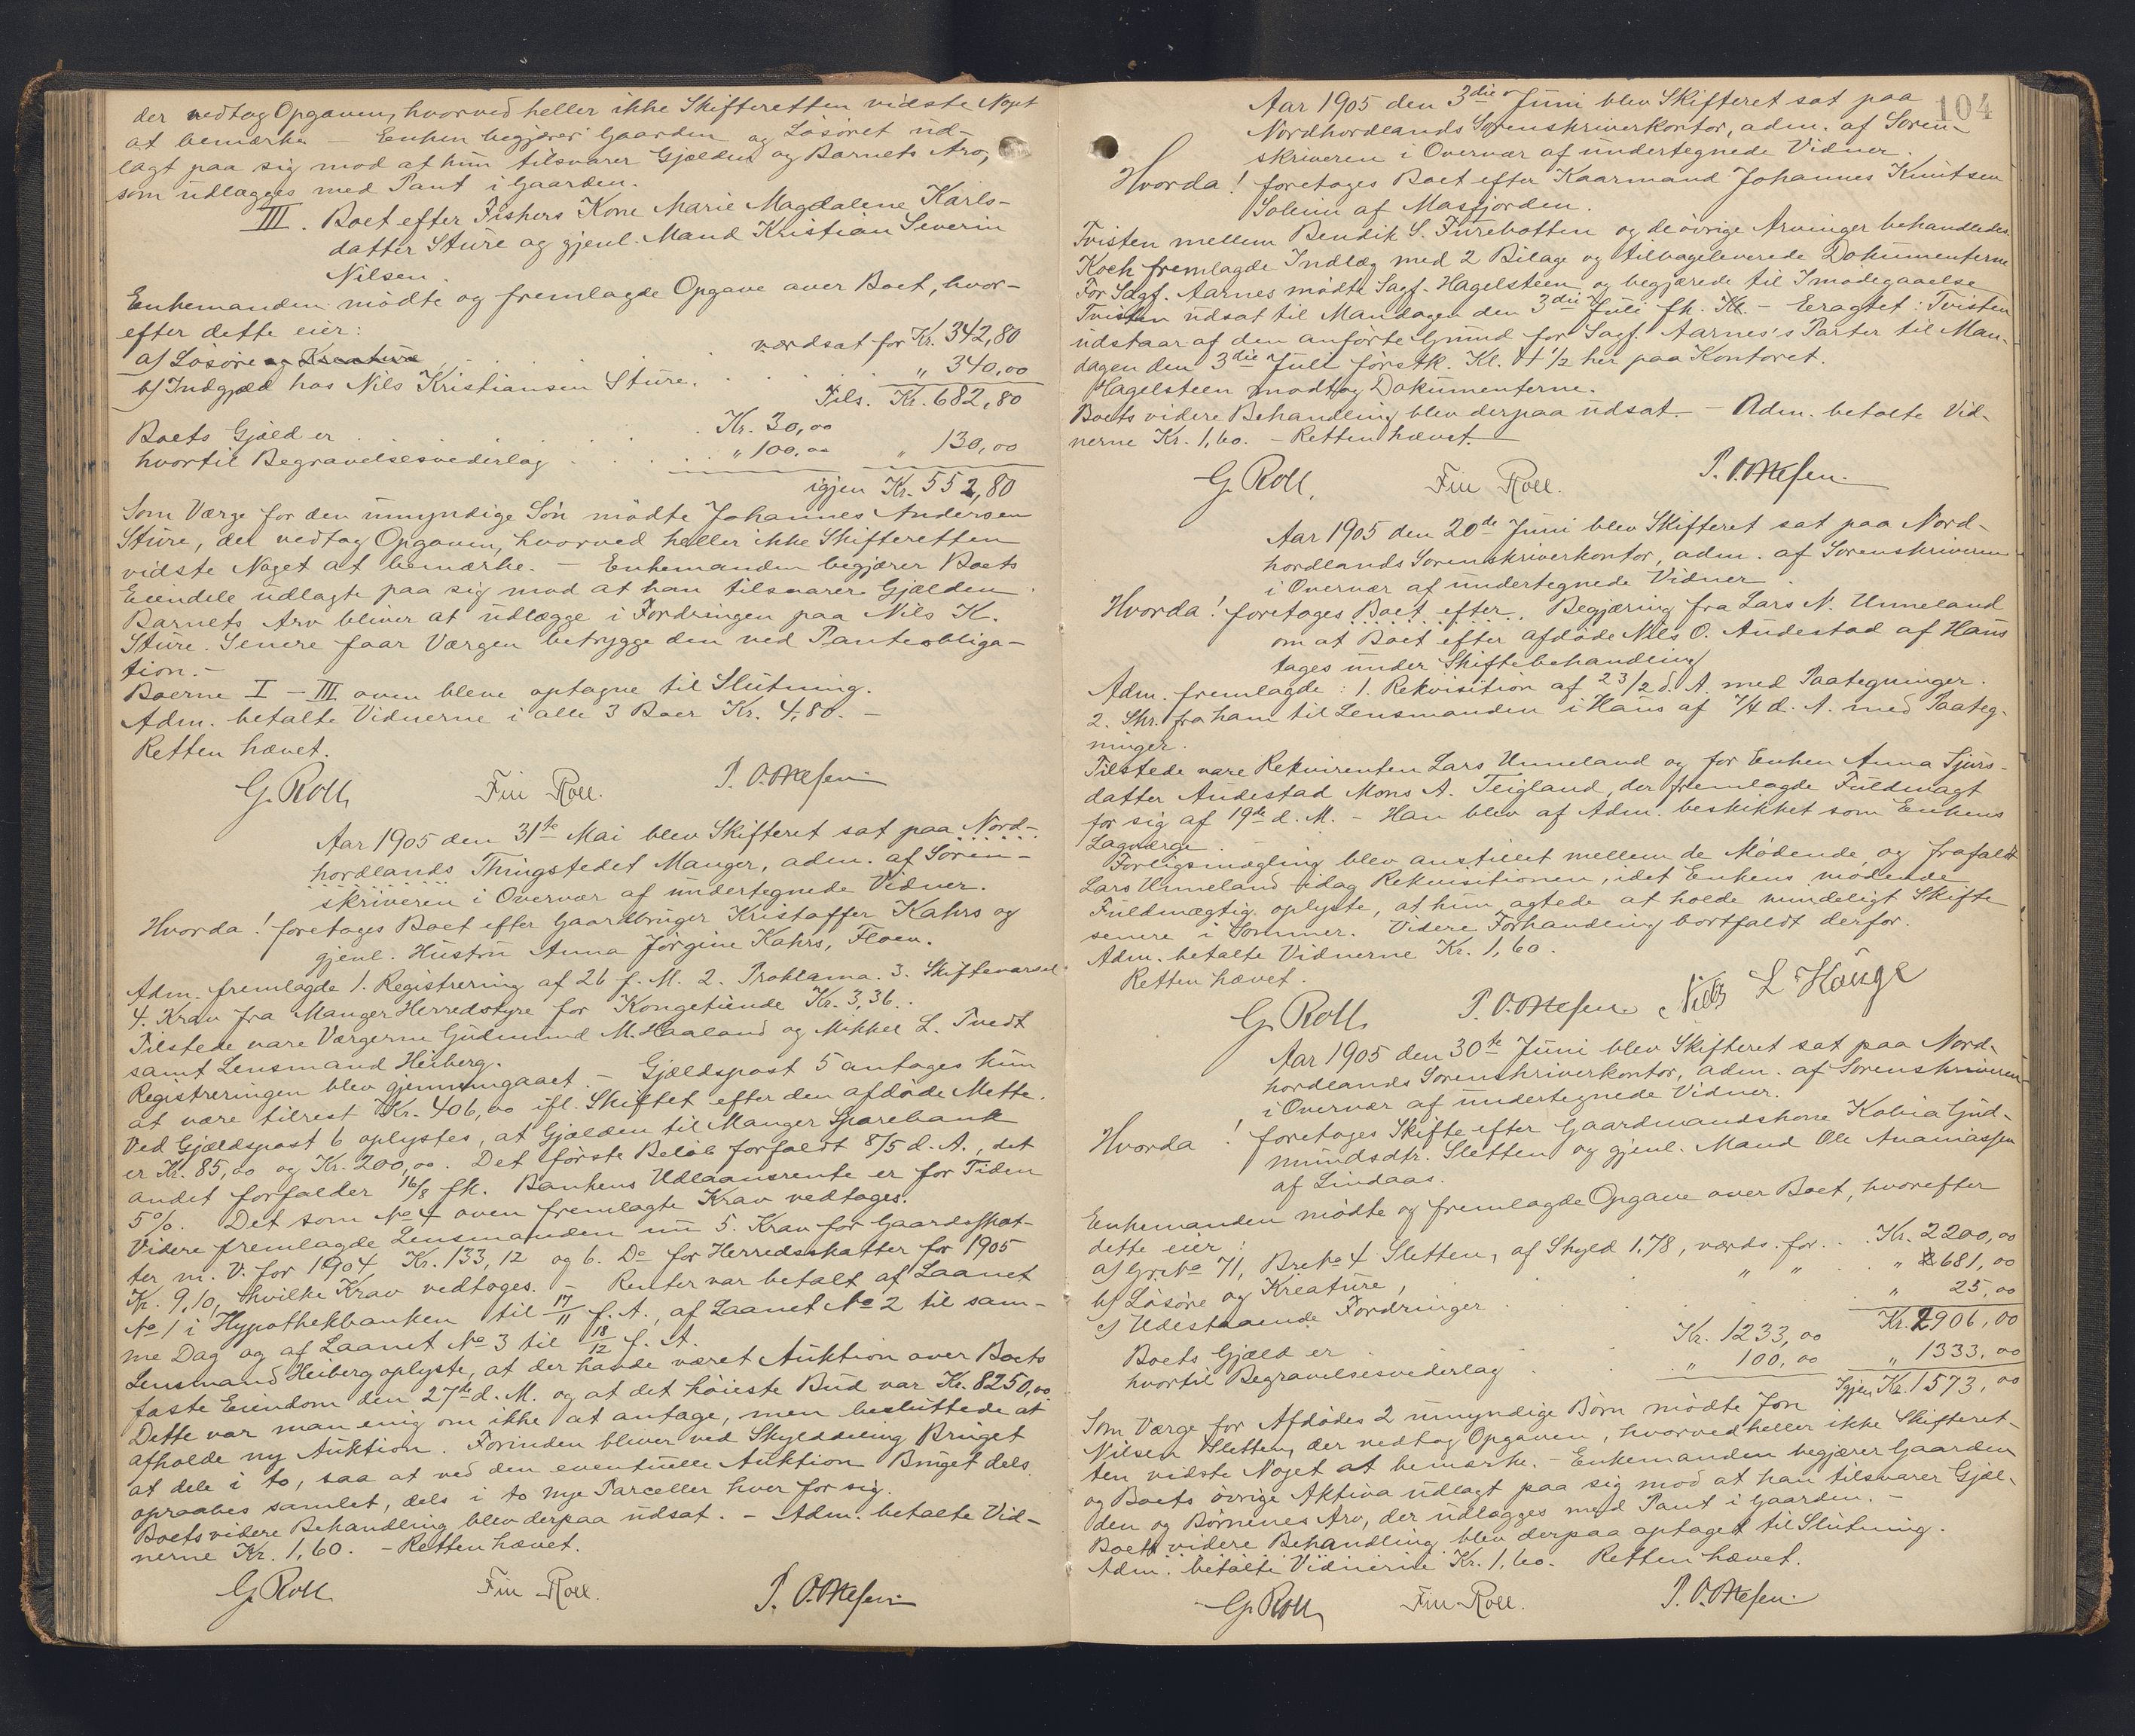 der vedtog Opgaven, hvorved heller ikke Skifteretten vidste Noget
at bemærke – Enken begjærer Gaarden og Løsøret ud-
lagt paa sig mod at hun tilsvarer Gjælden og Barnets Arv,
som udlægges med Pant i Gaarden.
III. Boet efter Fiskers Kone Marie Magdalene Karls-
datter Sture og gjenl. Mand Kristian Severin
Nilsen.
Enkemanden mødte og fremlagde Opgave over Boet, hvor-
efter dette eier:
a) Løsøre og Kreature . . . værdsat for Kr. 342,80
b) Indgjæld hos Nils Kristiansen Sture. . . . . „ 340,00
Tils. Kr. 682,80
Boets Gjæld er . . . . Kr. 30,00
hvortil Begravelsesvederlag . . . . „ 100,00 „ 130,00
igjen Kr. 552,80
Som Værge for den umyndige Søn mødte Johannes Andersen
Sture, der vedtog Opgaven, hvorved heller ikke Skifteretten
vidste Noget at bemærke. – Enkemanden begjærer Boets
Eiendele udlagte paa sig mod at han tilsvarer Gjælden.
Barnets Arv bliver at udlægge i Fordringen paa Nils K.
Sture. Senere faar Værgen betrygge den ved Panteobliga-
tion. –
Boerne I – III oven bleve optagne til Slutning.
Adm. betalte Vidnerne i alle 3 Boer Kr. 4,80. –
Retten hævet.
G. Roll Finn Roll. P. Ottesen
Aar 1905 den 31te Mai blev Skifteret sat paa Nord-
hordlands Thingstedet Manger, adm. af Soren-
skriveren i Overvær af undertegnede Vidner.
Hvorda! foretoges Boet efter Gaardbruger Kristoffer Kahrs og
gjenl. Hustru Anna Jørgine Kahrs, Floen.
Adm. fremlagde 1. Registrering af 26 f. M. 2. Proklama. 3. Skiftevarsel.
4. Krav fra Manger Herredstyre for Kongetiende Kr. 3,36..
Tilstede vare Værgerne Gudmund M. Haaland og Mikkel L. Tvedt
samt Lensmand Heiberg.
Registreringen blev gjennemgaaet. – Gjældspost 5 antages kun
at være tilrest Kr. 406,00 ifl. Skiftet efter den afdøde Mette.
Ved Gjældspost 6 oplystes, at Gjælden til Manger Sparebank
er Kr. 85,00 og Kr. 200,00. Det første Beløb forfaldt 8/5 d. A., det
andet forfalder 16/8 fk. Bankens Udlaansrente er for Tiden
5%. Det som No 4 oven fremlagte Krav vedtoges.
Videre fremlagde Lensmanden nu 5. Krav for Gaardsskat-
ter m. V. for 1904 Kr. 133,12 og 6. Do for Herredsskatter for 1905
Kr. 9,10, hvilke Krav vedtoges. – Renter var betalt af Laanet
No 1 i Hypothekbanken til 17/11 f. A., af Laanet No 2 til sam-
me Dag og af Laanet No 3 til 18/12 f. A.
Lensmand Heiberg oplyste, at der havde været Auktion over Boets
faste Eiendom den 27de d. M. og at det høieste Bud var Kr. 8250,00
Dette var man enig om ikke at antage, men besluttede at
afholde ny Auktion. Forinden bliver ved Skylddeling Bruget
at dele i to, saa at ved den eventuelle Auktion Bruget dels
opraabes samlet, dels i to nye Parceller hver for sig.
Boets videre Behandling blev derpaa udsat. – Adm. betalte Vid-
nerne Kr. 1,60. – Retten hævet.
G. Roll Finn Roll. P. Ottesen
104
Aar 1905 den 3die Juni blev Skifteret sat paa
Nordhordlands Sorenskriverkontor, adm. af Soren-
skriveren i Overvær af undertegnede Vidner.
Hvorda! foretoges Boet efter Kaarmand Johannes Knutsen
Soleim af Masfjorden.
Tvisten mellem Bendik S. Furebotten og de øvrige Arvinger behandledes
Koch fremlagde Indlæg med 2 Bilage og tilbageleverede Dokumenterne
For Sagf. Aarnes mødte Sagf. Hagelsteen og begjærede til Imødegaaelse
Tvisten udsat til Mandagen den 3die Juli fk. Kl. – Eragtet: Tvisten
udstaar af den anførte Grund for Sagf. Aarnes's Parter til Man-
dagen den 3die Juli førstk. Kl. 4 1/2 her paa Kontoret.
Hagelsteen modtog Dokumenterne.
Boets videre Behandling blev derpaa udsat. – Adm. betalte Vid-
nerne Kr. 1,60. – Retten hævet.
G. Roll. Finn Roll. P. Ottesen.
Aar 1905 den 20de Juni blev Skifteret sat paa Nord-
hordlands Sorenskriverkontor, adm. af Sorenskriveren
i Overvær af undertegnede Vidner.
Hvorda! foretoges Boet efter. Begjæring fra Lars N. Unneland
om at Boet efter afdøde Nils O. Audestad af Haus
tages under Skiftebehandling
Adm. fremlagde: 1. Rekvisition af 23/2 d. A. med Paategninger.
2. Skr. fra ham til Lensmanden i Haus af 7/4 d. A. med Paateg-
ninger.
Tilstede vare Rekvirenten Lars Unneland og for Enken Anna Sjurs-
datter Audestad Mons A. Teigland, der fremlagde Fuldmagt
for sig af 19de d. M. – Han blev af Adm. beskikket som Enkens
Lagværge. –
Forligsmægling blev anstillet mellem de Mødende, og frafaldt
Lars Unneland idag Rekvisitionen, idet Enkens mødende
Fuldmægtig oplyste, at hun agtede at holde mindeligt Skifte
senere i Sommer. Videre Forhandling bortfaldt derfor.
Adm. betalte Vidnerne Kr. 1,60.
Retten hævet.
G. Roll P. Ottesen Nils L Hauge
Aar 1905 den 30te Juni blev Skifteret sat paa Nord-
hordlands Sorenskriverkontor, adm. af Sorenskriveren
i Overvær af undertegnede Vidner.
Hvorda! foretoges Skifte efter Gaardmandskone Kolvia Gud-
mundsdtr. Sletten og gjenl. Mand Ole Ananiassen
af Lindaas.
Enkemanden mødte og fremlagde Opgave over Boet, hvorefter
dette eier:
a) Gr. No 71, Br. No 4 Sletten, af Skyld 1.78, værds. for . . Kr. 2200,00
b) Løsøre og Kreature, „ „ . . „ 681,00
c) Udestaaende Fordringer . . . . „ 25,00
Kr. 2906,00
Boets Gjæld er . . . Kr. 1233,00
hvortil Begravelsesvederlag . . . „ 100,00 „ 1333,00
Igjen Kr. 1573,00
Som Værge for Afdødes 2 umyndige Børn mødte Jon
Nilsen Sletten, der vedtog Opgaven, hvorved heller ikke Skifteret-
ten vidste Noget at bemærke. – Enkemanden begjærer Gaarden
og Boets øvrige Aktiva udlagt paa sig mod at han tilsvarer Gjæl-
den og Børnenes Arv, der udlægges med Pant i Gaarden. –
Boets videre Behandling blev derpaa optaget til Slutning.
Adm. betalte Vidnerne Kr. 1,60. Retten hævet.
G. Roll Finn Roll. P. Ottesen.